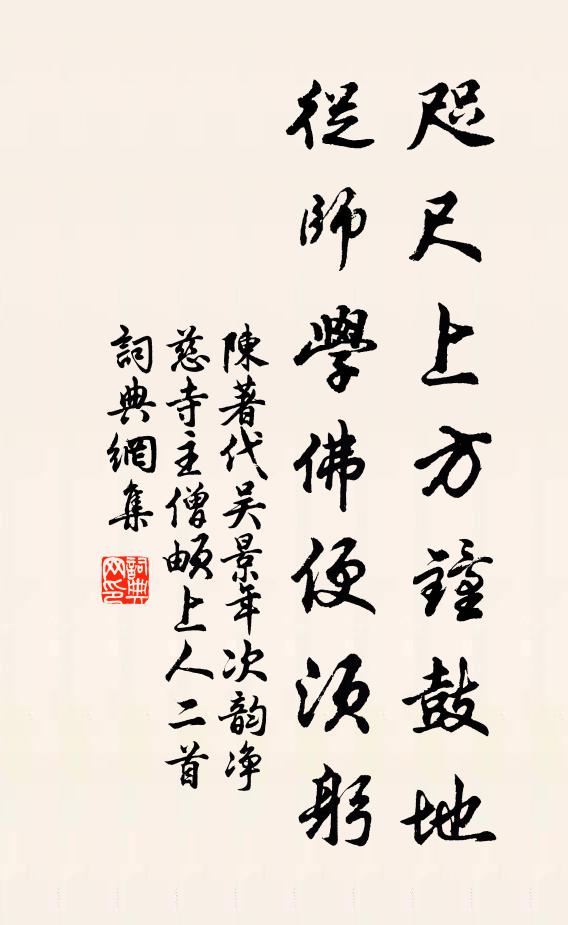 咫尺上方鐘鼓地
從師學佛便須躬
陳著代吴景年次韵净
慈寺主僧頔上人二首
詞典網集
詞典網印